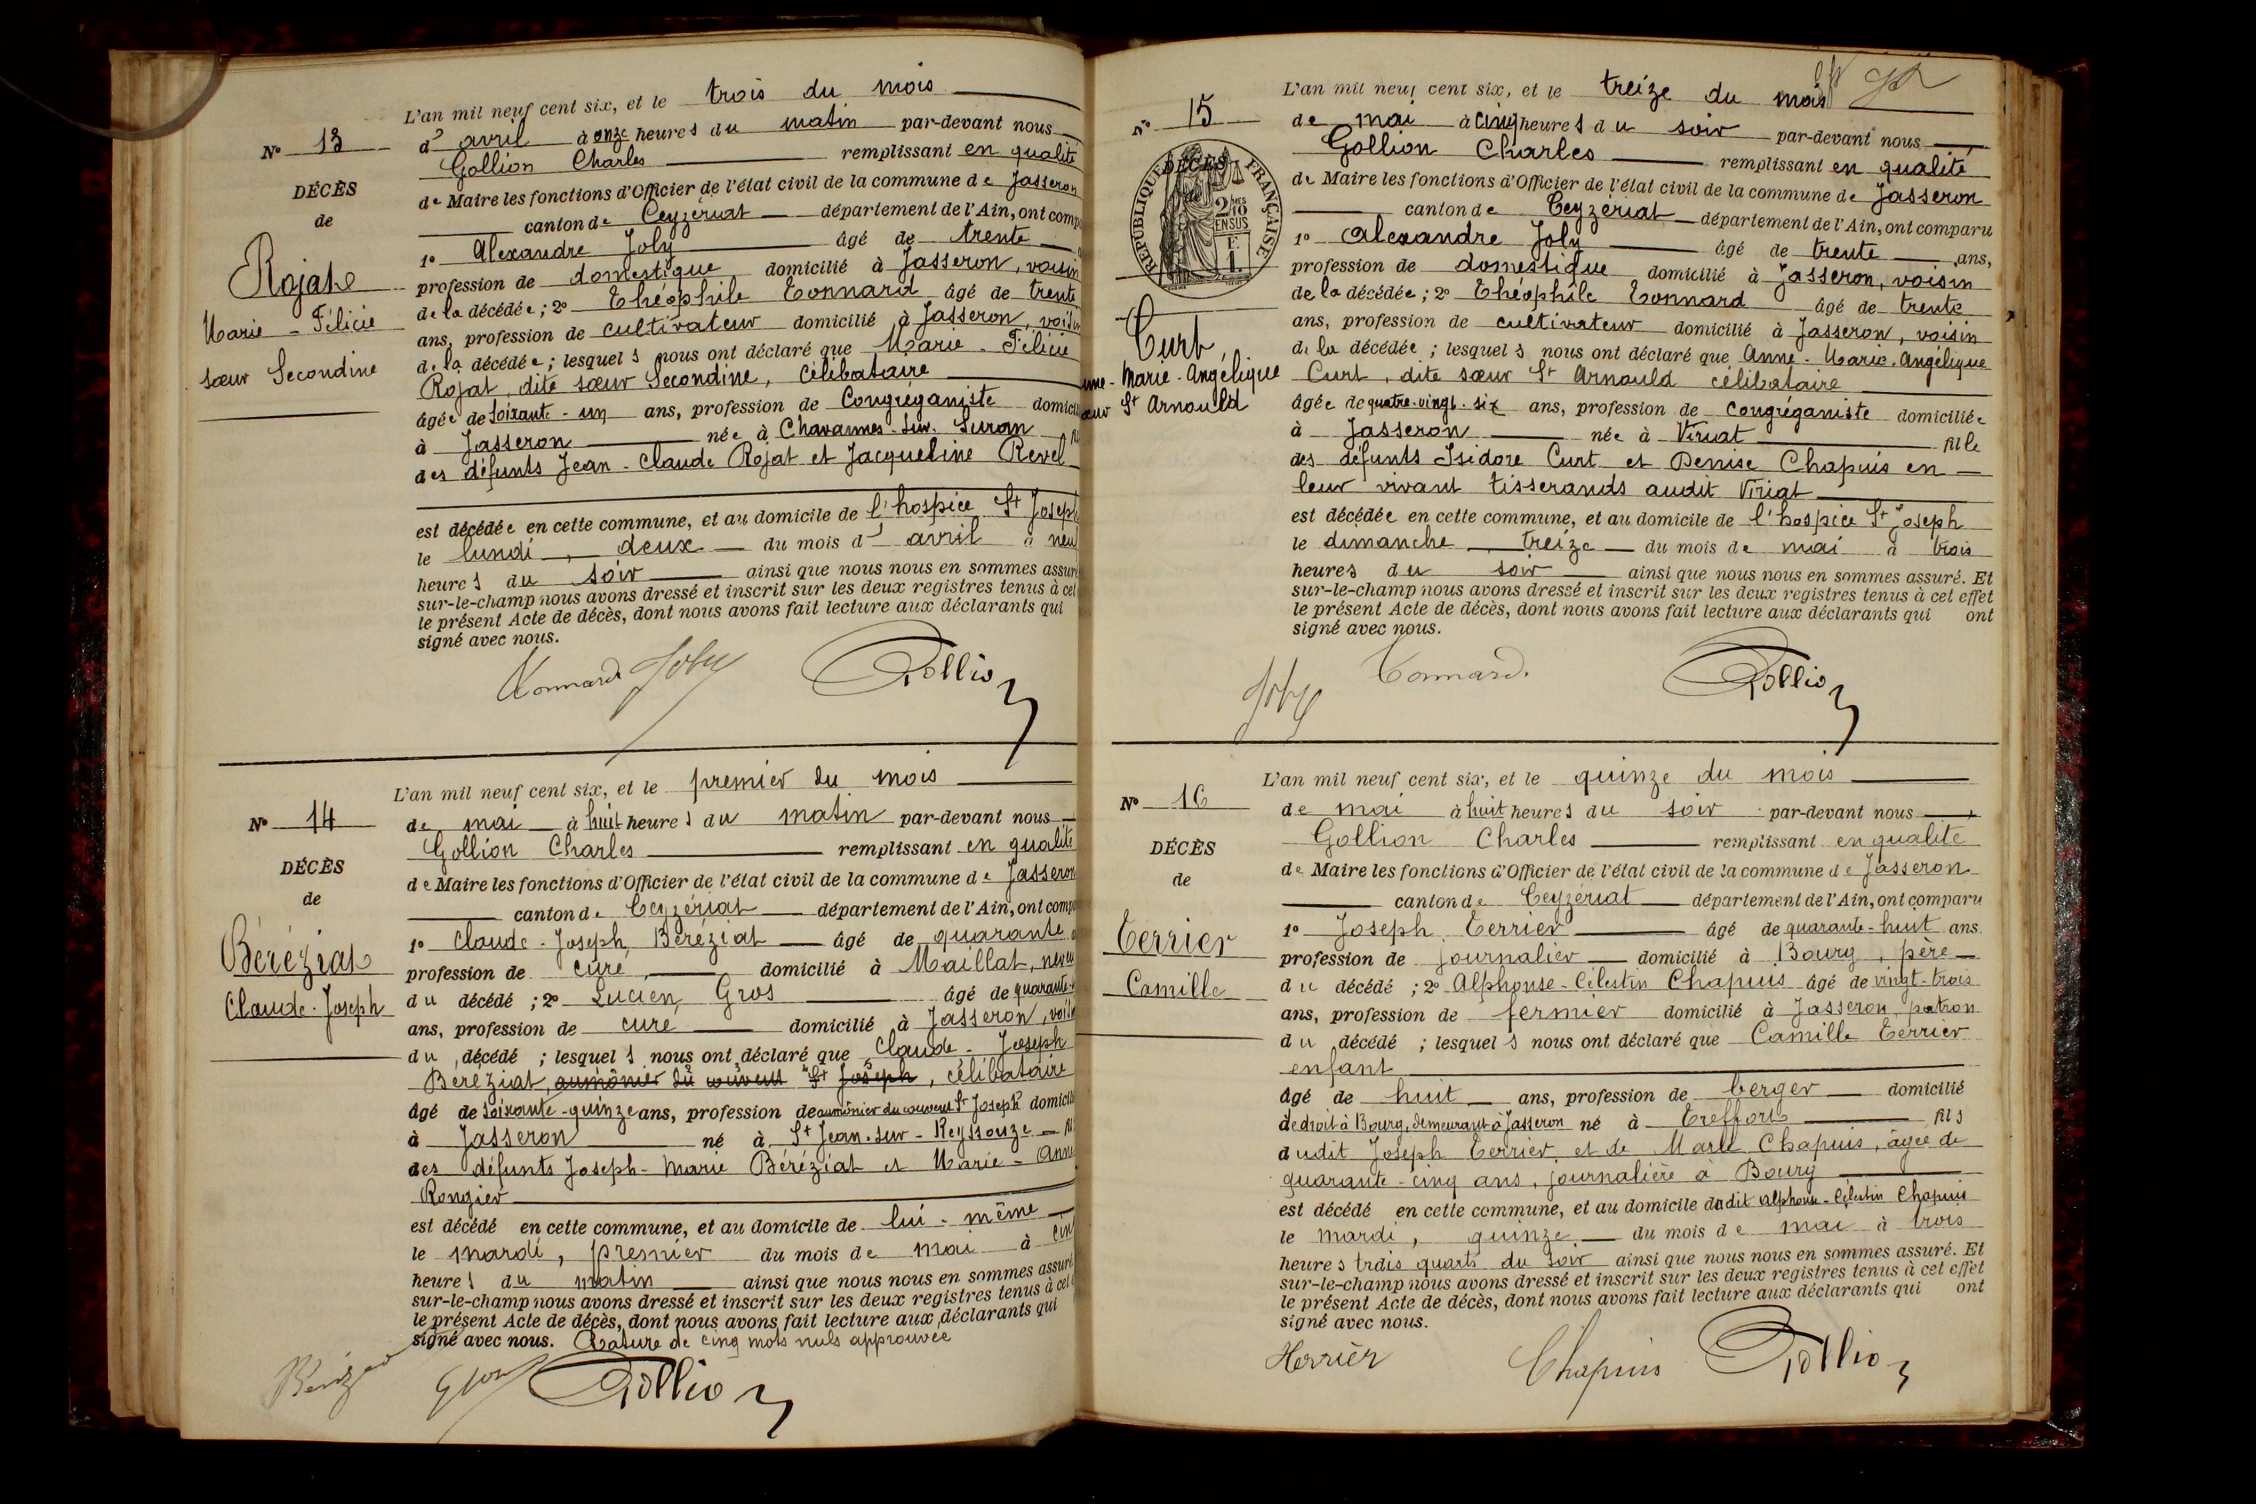 L'an mil neuf cent six, et le trois du mois
d'avril à onze heures du matin par-devant nous
Gollion Charles remplissant en qualité
de Maire les fonctions d'Officier de l'état civil de la commune de Jasseron
canton de Ceyzériat département de l'Ain, ont comp
1º Alexandre Joly âgé de trente
profession de domestique domicilié à Jasseron, voisin
de la décédée ; 2º Théophile Tonnard âgé de trente
ans, profession de cultivateur domicilié à Jasseron, voisin
de la décédée ; lesquels nous ont déclaré que Marie - Félicie
Rojat, dite sœur Secondine, célibataire
âgée de soixante-un ans, profession de Congréganiste domicil
à Jasseron née à Chavannes-sur-Suran
des défunts Jean-Claude Rojat et Jacqueline Revel
est décédée en cette commune, et au domicile de l'hospice St Joseph
le lundi, deux du mois d'avril à neu
heures du soir ainsi que nous nous en sommes assuré
sur-le-champ nous avons dressé et inscrit sur les deux registres tenus à cet
le présent Acte de décès, dont nous avons fait lecture aux déclarants qui
signé avec nous.
Nº 13
DÉCÈS
de
Rojat
Marie - Félicie
sœur Secondine
Tonnard Joly Gollion
L'an mil neuf cent six, et le premier du mois
de mai à huit heures du matin par-devant nous
Gollion Charles remplissant en qualité
de Maire les fonctions d'Officier de l'état civil de la commune de Jasseron
canton de Ceyzériat département de l'Ain, ont compa
1º Claude-Joseph Béréziat âgé de quarante
profession de curé, domicilié à Maillat, neveu
du décédé ; 2º Lucien Gros âgé de quarante
ans, profession de curé domicilié à Jasseron, voisi
du décédé ; lesquels nous ont déclaré que Claude - Joseph
Béréziat, aumônier du couvent St Joseph, célibataire
âgé de soixante-quinze ans, profession de aumônier du couvent St Joseph domicili
à Jasseron né à St Jean-sur-Reyssouze
des défunts Joseph-Marie Béréziat et Marie-Anne
Rongier
est décédé en cette commune, et au domicile de lui-même
le mardi, premier du mois de mai à cinq
heures du matin ainsi que nous nous en sommes assuré
sur-le-champ nous avons dressé et inscrit sur les deux registres tenus à cet
le présent Acte de décès, dont nous avons fait lecture aux déclarants qui
signé avec nous. Rature de cinq mots nuls approuvée
Nº 14
DÉCÈS
de
Béréziat
Claude-Joseph
Gros Gollion
L'an mil neuf cent six, et le treize du mois
de mai à cinq heures du soir par-devant nous
Gollion Charles remplissant en qualité
de Maire les fonctions d'Officier de l'état civil de la commune de Jasseron
canton de Ceyzériat département de l'Ain, ont comparu
1º Alexandre Joly âgé de trente ans,
profession de domestique domicilié à Jasseron, voisin
de la décédée ; 2º Théophile Tonnard âgé de trente
ans, profession de cultivateur domicilié à Jasseron, voisin
de la décédée ; lesquels nous ont déclaré que Anne-Marie-Angélique
Curt, dite sœur St Arnould célibataire
âgée de quatre-vingt-six ans, profession de congréganiste domiciliée
à Jasseron née à Viriat fille
des défunts Isidore Curt et Denise Chapuis en
leur vivant tisserands audit Viriat
est décédée en cette commune, et au domicile de l'hospice St Joseph
le dimanche, treize du mois de mai à trois
heures du soir ainsi que nous nous en sommes assuré. Et
sur-le-champ nous avons dressé et inscrit sur les deux registres tenus à cet effet
le présent Acte de décès, dont nous avons fait lecture aux déclarants qui ont
signé avec nous.
Nº 15
DÉCÈS
de
RÉPUBLIQUE FRANÇAISE
2/10
EN SUS
Curt,
nne-Marie-Angélique
œur St Arnould
Joly Tonnard. Gollion
L'an mil neuf cent six, et le quinze du mois
de mai à huit heures du soir par-devant nous
Gollion Charles remplissant en qualité
de Maire les fonctions d'Officier de l'état civil de la commune de Jasseron
canton de Ceyzériat département de l'Ain, ont comparu
1º Joseph Terrier âgé de quarante-huit ans
profession de journalier domicilié à Bourg, père
du décédé ; 2º Alphonse-Célestin Chapuis âgé de vingt-trois
ans, profession de fermier domicilié à Jasseron, patron
du décédé ; lesquels nous ont déclaré que Camille Terrier
enfant
âgé de huit ans, profession de berger domicilié
de droit à Bourg, demeurant à Jasseron né à Treffort fils
dudit Joseph Terrier et de Marie Chapuis, âgée de
quarante-cinq ans, journalière à Bourg
est décédé en cette commune, et au domicile dudit Alphonse-Célestin Chapuis
le mardi, quinze du mois de mai à trois
heures trois quarts du soir ainsi que nous nous en sommes assuré. Et
sur-le-champ nous avons dressé et inscrit sur les deux registres tenus à cet effet
le présent Acte de décès, dont nous avons fait lecture aux déclarants qui ont
signé avec nous.
Nº 16
DÉCÈS
de
Terrier
Camille
Terrier Chapuis Gollion